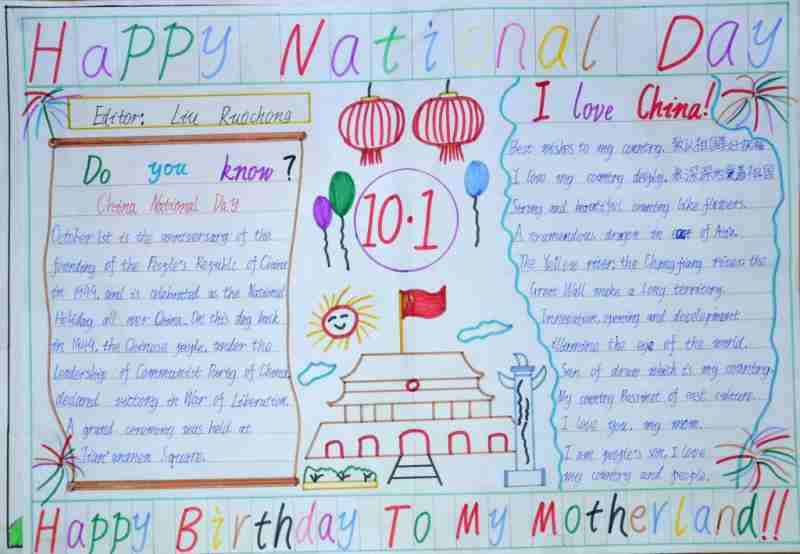 Happy National Day
Editor: Liu Ruochong
Do you know?
China National Day
October 1st is the anniversary of the
founding of the People's Republic of China
in 1949, and is celebrated as the National
Holiday all over China. On this day back
in 1949, the Chinese people, under the
Leadership of Communist Party of China
declared victory in War of Liberation.
A grand ceremony was held at
Tian'anmen Square.
10·1
I love China!
Best wishes to my country.
I love my country deeply.
Strong and beautiful country like flowers.
A tremendous dragon in of Asia.
The Yellow river, the Chang jiang river, the
Great Wall make a long territory.
Innovation, opening and development
the eye of the world.
Son of which is my country
My country of east culture.
I love you, my mom.
I am people's son, I love
my country and people.
Happy Birthday To My Motherland!!